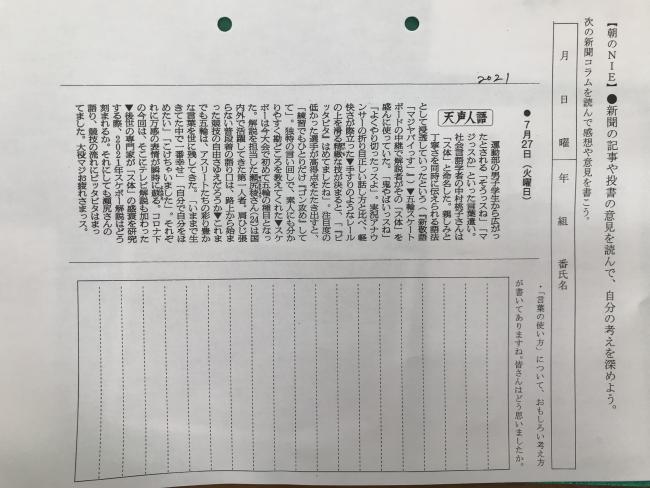 【朝のNIE】●新聞の記事や投書の意見を読んで、自分の考えを深めよう。
次の新聞コラムを読んで感想や意見を書こう。
月 日 曜 年 組 番氏名
・「言葉の使い方」について、おもしろい考え方
が書いてありますね。皆さんはどう思いましたか。
2021
●7月27日(火曜日)
天声人語
運動部の男子学生から広がっ
たとされる「そうっスね」「マ
ジっスか」といった言葉遣い。
社会言語学者の中村桃子さんは
「ス体」と命名した。親しみと
丁寧さを同時に伝えられる語法
として浸透していったという=『新敬語
「マジヤバイっす」』▼五輪スケート
ボードの中継で解説者がその「ス体」を
盛んに使っていた。「鬼やばいっスね」
「よくやり切ったっスよ」。実況アナウ
ンサーの折り目正しい話し方と比べ、軽
快さが際立った▼手すりのようなレール
の上を滑る精緻な技が決まると、「『ビ
ッタビタ』はめてましたね」。注目度の
低かった選手が高得点をたたき出すと、
「練習でもひとりだけ『ゴン攻め』して
て」。独特の言い回しで、素人にも分か
りやすく勘どころを教えてくれた▼スケ
ボーは今大会で初めて五輪の種目となっ
た。解説を担当した瀬尻稜さん(24)は国
内外で活躍してきた第一人者。肩ひじ張
らない普段着の語り口は、路上から始ま
った競技の自由さゆえだろうか▼これま
でも五輪は、アスリートたちの彩り豊か
な言葉を世に残してきた。「いままで生
きてた中で一番幸せ」「自分で自分をほ
めたい」「こけちゃいました」。それぞ
れに万感の表情が瞬時に蘇る。コロナ下
の今回は、そこにテレビ解説も加わった
▼後世の専門家が「ス体」の盛衰を研究
する際、2021年スケボー解説はどう
刻まれるか。それにしても瀬尻さんの
語り、競技の流れにビッタビタはまっ
てました。大役マジお疲れさまっス。